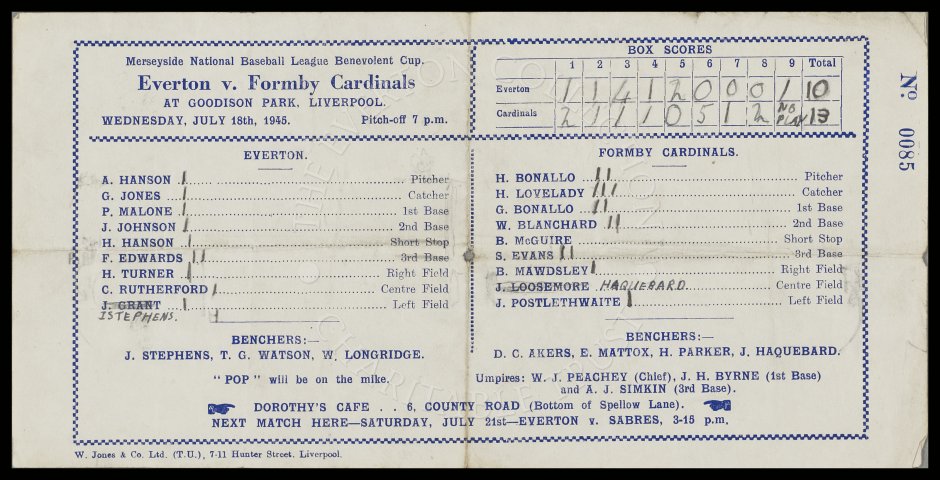 Merseyside National Baseball League Benevolent Cup.
Everton v. Formby Cardinals
AT GOODISON PARK, LIVERPOOL.
WEDNESDAY, JULY 18th, 1945. Pitch-off 7 p.m.
BOX SCORES
1 2 3 4 5 6 7 8 9 Total
Everton 1 1 4 1 2 0 0 0 1 10
Cardinals 2 1 1 1 0 5 1 2 NO PLAY 13
No. 0085
EVERTON.
A. HANSON Pitcher
G. JONES Catcher
P. MALONE 1st Base
J. JOHNSON 2nd Base
H. HANSON Short Stop
F. EDWARDS 3rd Base
H. TURNER Right Field
C. RUTHERFORD Centre Field
J. GRANT Left Field
STEPHENS.
BENCHERS:—
J. STEPHENS, T. G. WATSON, W. LONGRIDGE.
"POP" will be on the mike.
FORMBY CARDINALS.
H. BONALLO Pitcher
H. LOVELADY Catcher
G. BONALLO 1st Base
W. BLANCHARD 2nd Base
B. McGUIRE Short Stop
S. EVANS 3rd Base
B. MAWDSLEY Right Field
J. LOOSEMORE HAQUEBARD. Centre Field
J. POSTLETHWAITE Left Field
BENCHERS:—
D. C. AKERS, E. MATTOX, H. PARKER, J. HAQUEBARD.
Umpires: W. J. PEACHEY (Chief), J. H. BYRNE (1st Base)
and A. J. SIMKIN (3rd Base).
DOROTHY'S CAFE . . 6, COUNTY ROAD (Bottom of Spellow Lane).
NEXT MATCH HERE—SATURDAY, JULY 21st—EVERTON v. SABRES, 3-15 p.m.
W. Jones & Co. Ltd. (T.U.), 7-11 Hunter Street, Liverpool.